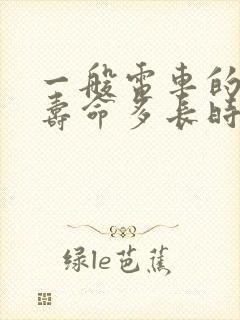 一般雷車的
壽命多長時
绿le芭蕉